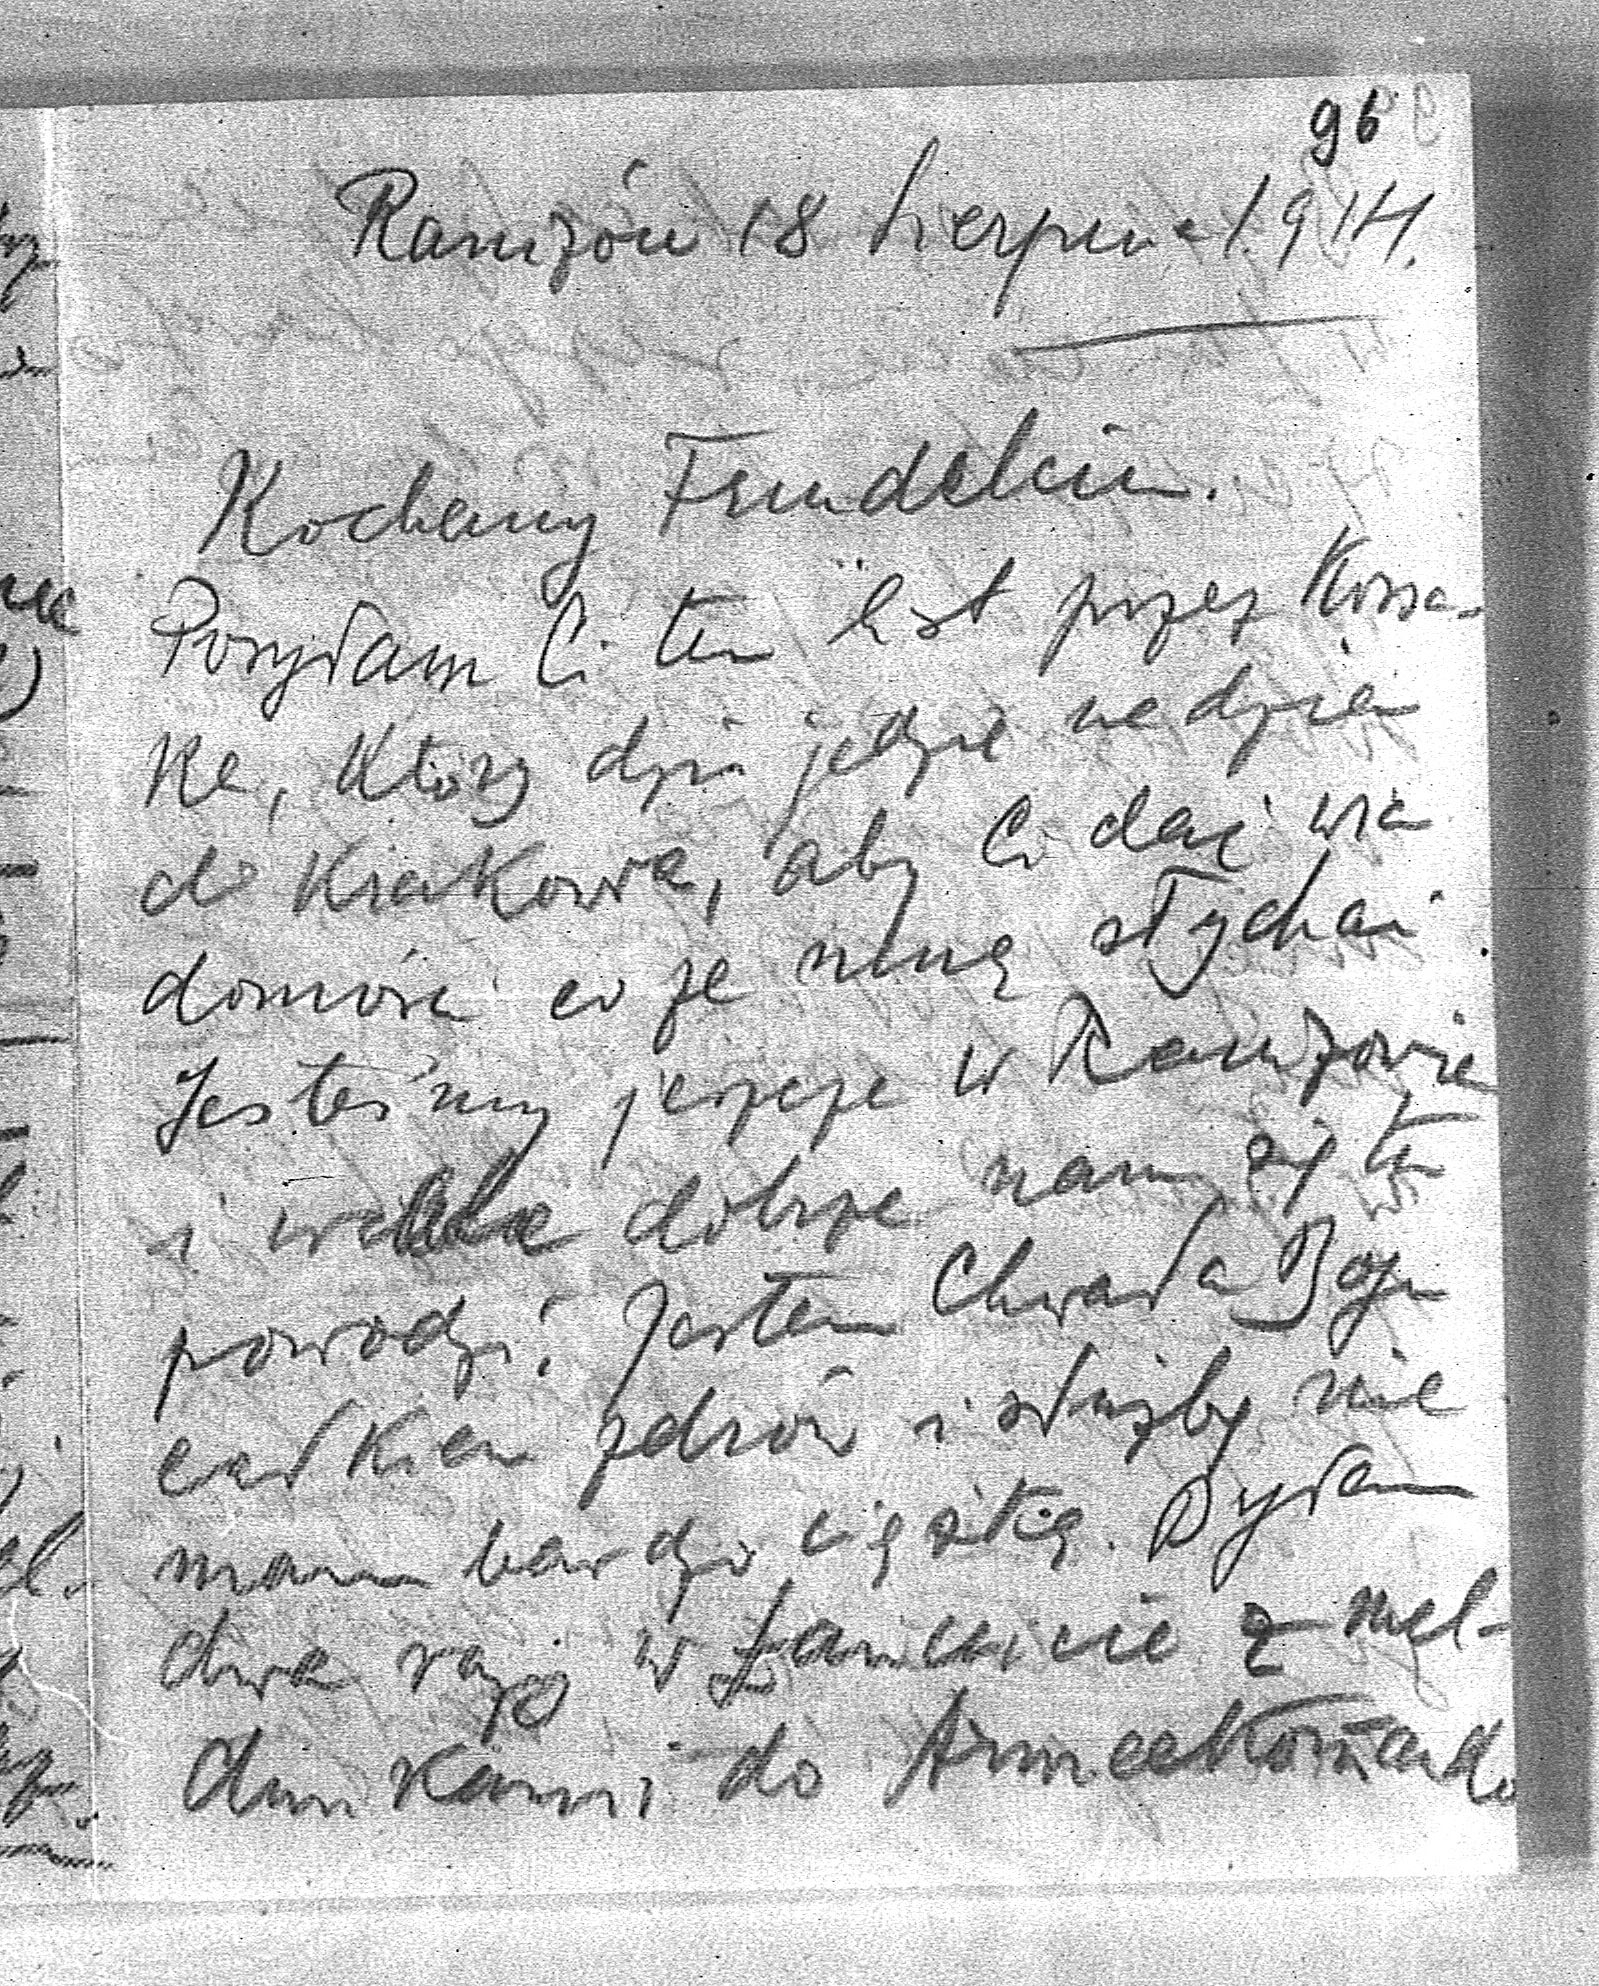 96
Raniżów 18 sierpnia 1914.
Kochany
Posyłam Ci ten list przez Kossa-
ka, który dziś jedzie na dzień
do Krakowa, aby Ci dać wia
domość co ze mną słychać
Jesteśmy jeszcze w Raniżowie
i dobrze nam się tu
powodzi, Jestem Chwała Bogu
całkiem zdrów i służby nie
mam bardzo ciężkiej. Byłam
dwa razy w Łańcucie z mel-
dunkami do Armeekommando